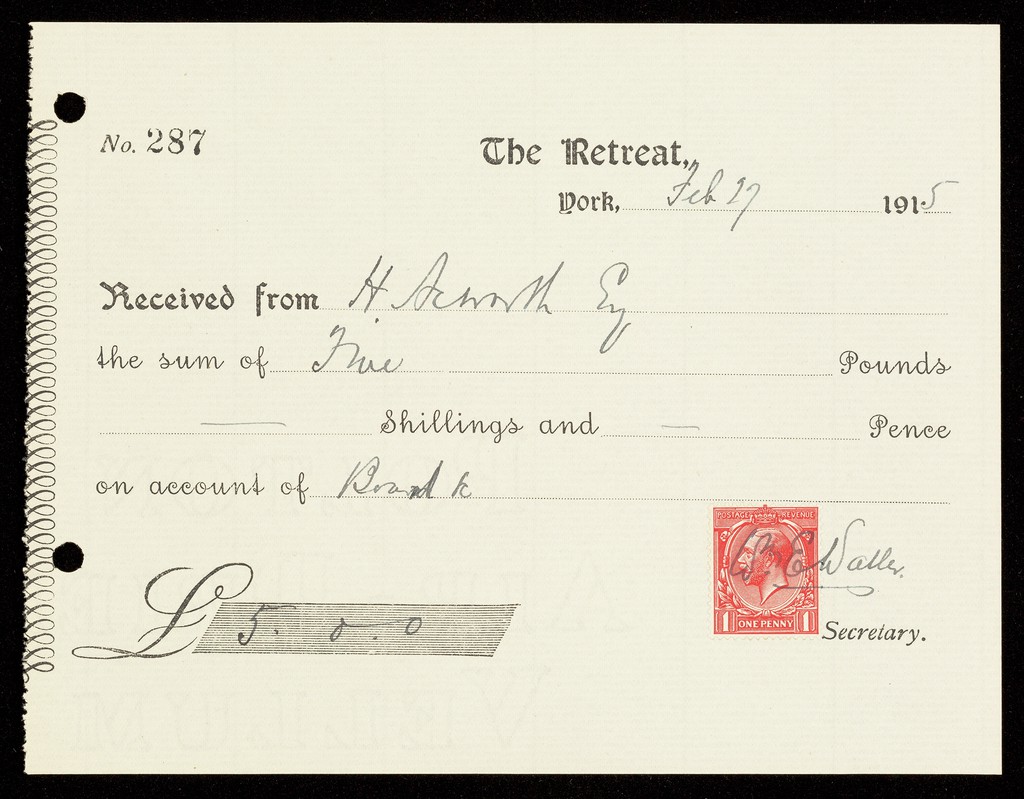 No. 287
The Retreat,
York, Feb 27 1915
Received from H. Acworth Esq
the sum of Five Pounds
— Shillings and — Pence
on account of Board &c
POSTAGE REVENUE
Wm C Waller.
1 ONE PENNY 1
Secretary.
£ 5. 0. 0